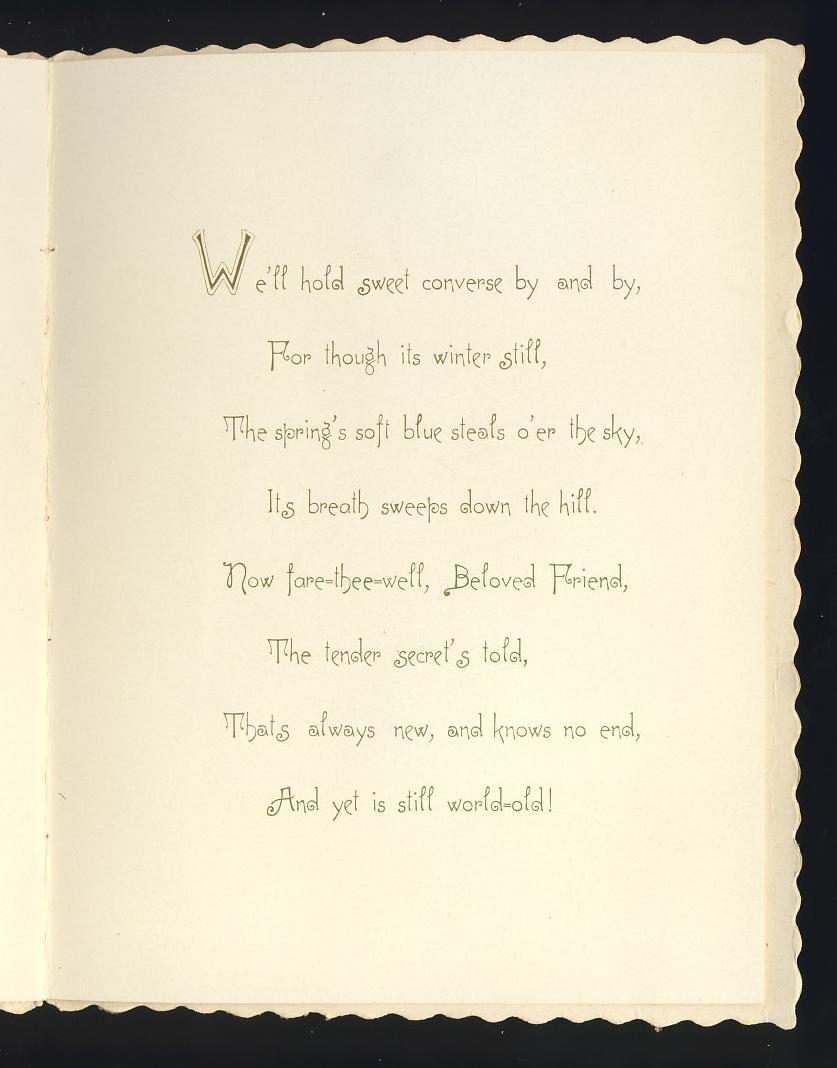 We'll hold sweet converse by and by,
For though its winter still,
The spring's soft blue steals o'er the sky,
Its breath sweeps down the hill.
Now fare=thee=well, Beloved Friend,
The tender secret's told,
Thats always new, and knows no end,
And yet is still world=old!